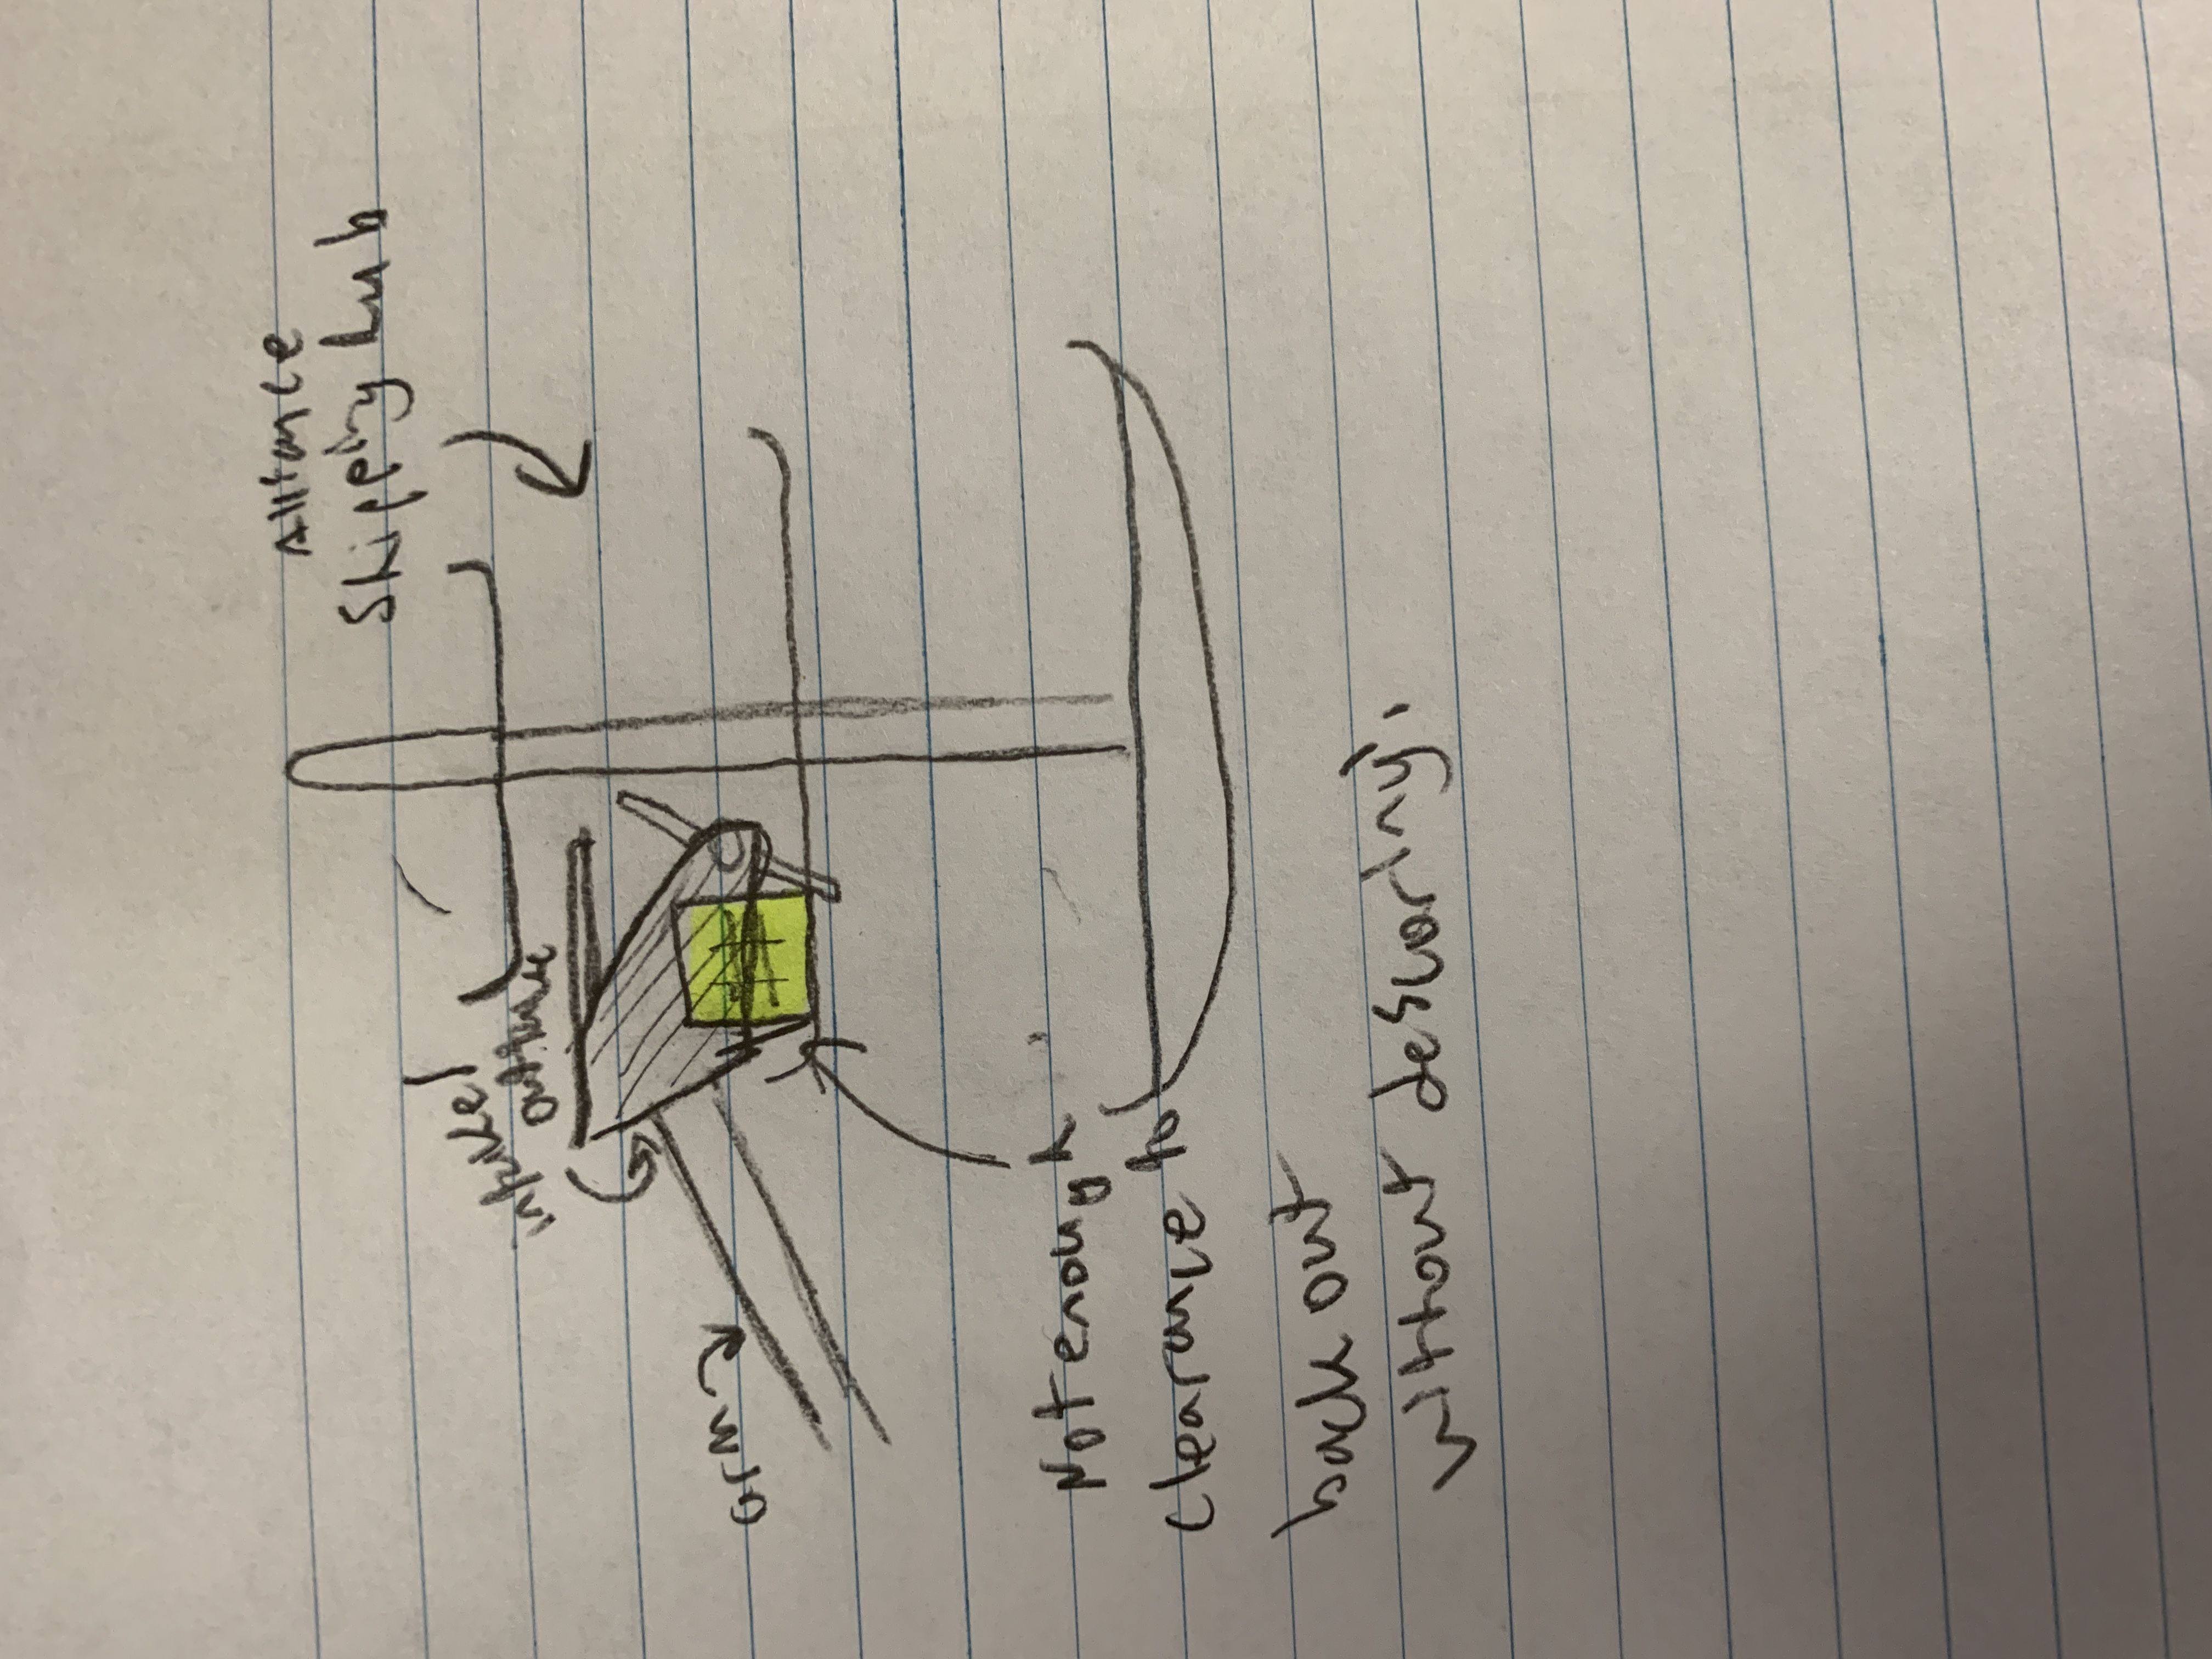 Alliance
Shipping hub
intake/
outtake
arm
Not enough
clearance to
back out
without descoring.